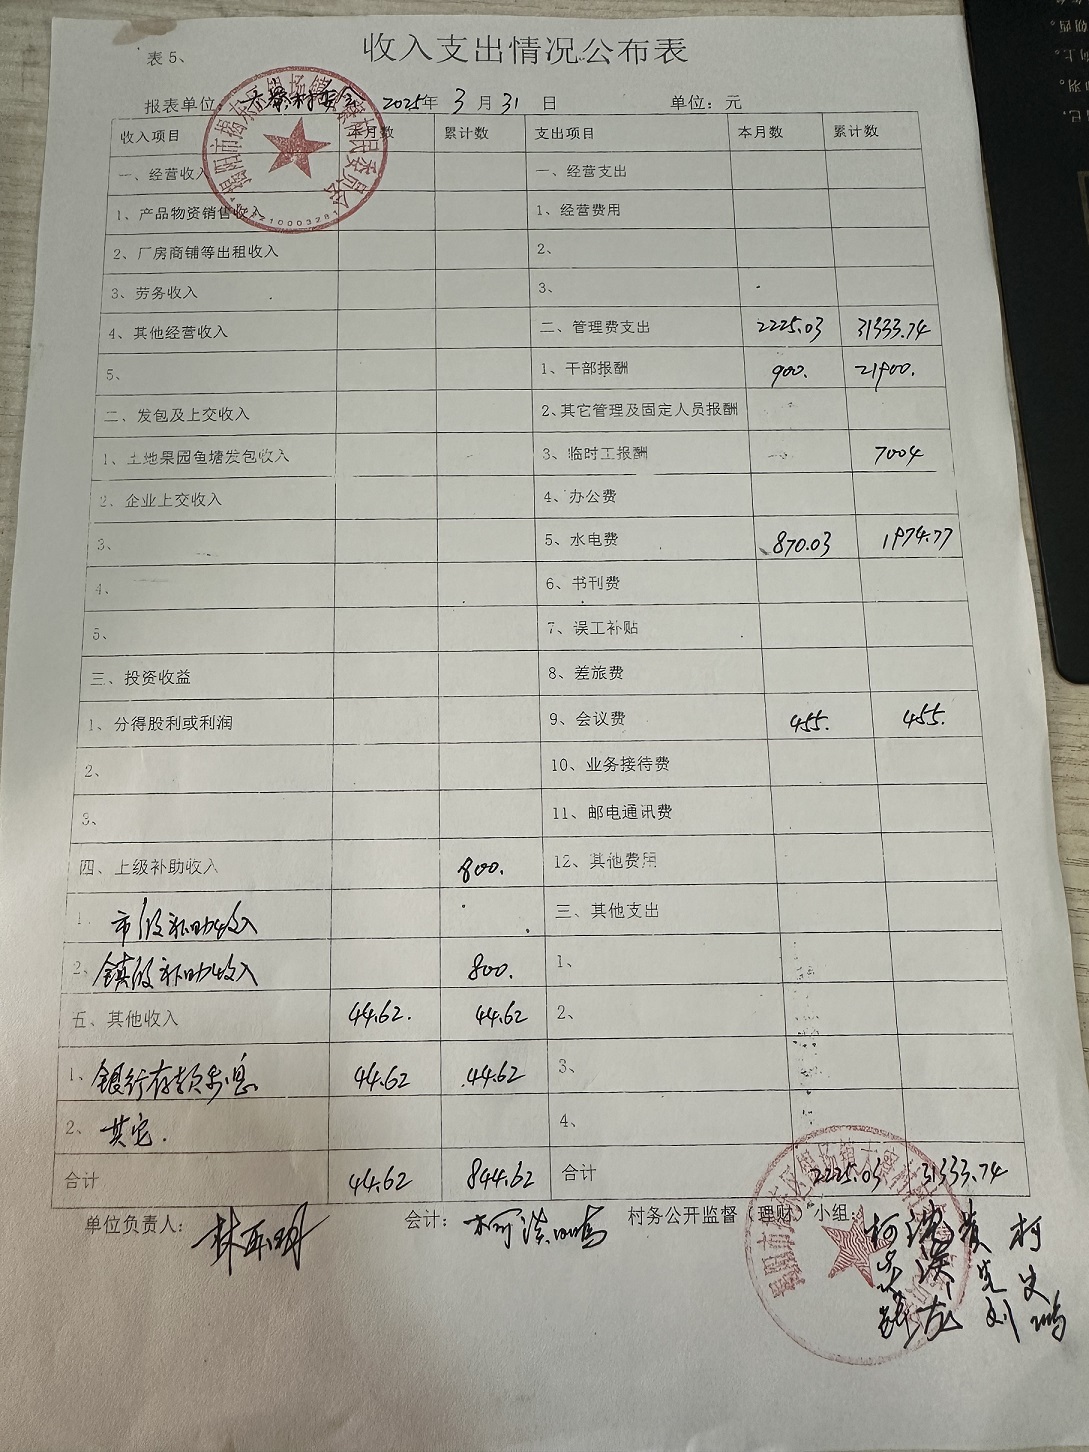 表5、
收入支出情况公布表
报表单位: 2025年 3 月 31 日 单位：元
收入项目 本月数 累计数 支出项目 本月数 累计数
一、经营收入 一、经营支出
1、产品物资销售收入 1、经营费用
2、厂房商铺等出租收入 2、
3、劳务收入 3、
4、其他经营收入 二、管理费支出 2225.03 31333.74
5、 1、干部报酬 900. 21900.
二、发包及上交收入 2、其它管理及固定人员报酬
1、土地果园鱼塘发包收入 3、临时工报酬 7004
2、企业上交收入 4、办公费
3、 5、水电费 870.03 1974.77
4、 6、书刊费
5、 7、误工补贴
三、投资收益 8、差旅费
1、分得股利或利润 9、会议费 455. 455.
2、 10、业务接待费
3、 11、邮电通讯费
四、上级补助收入 800. 12、其他费用
1、市级补助收入 三、其他支出
2、镇级补助收入 800. 1、
五、其他收入 44.62. 44.62 2、
1、银行存款利息 44.62 44.62 3、
2、其它. 4、
合计 44.62 844.62 合计 2225.03 31333.74
单位负责人： 林 明 会计： 柯 村务公开监督（理财）小组： 柯 柯